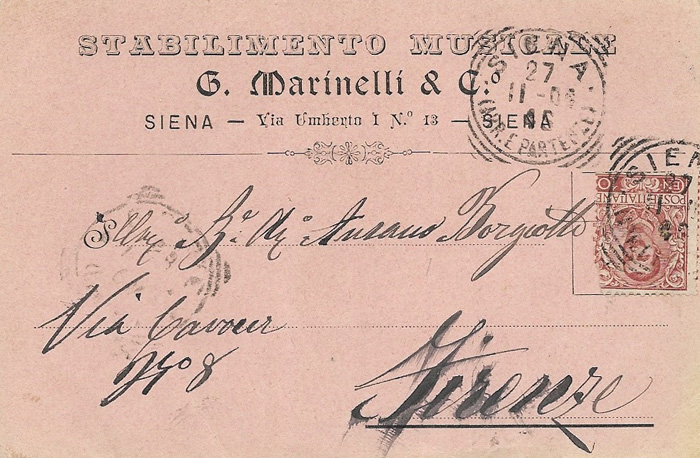 STABILIMENTO MUSICALE
G. Marinelli & C.º
SIENA — Via Umberto I N.º 13 — SIENA
SIENA
27
11-0
(ARR. E PARTENZE)
SIEN
POSTE ITALIANE
Ill.mo Sr. Mo Ansano Borgiotto
Via Cavour
No 8
Firenze